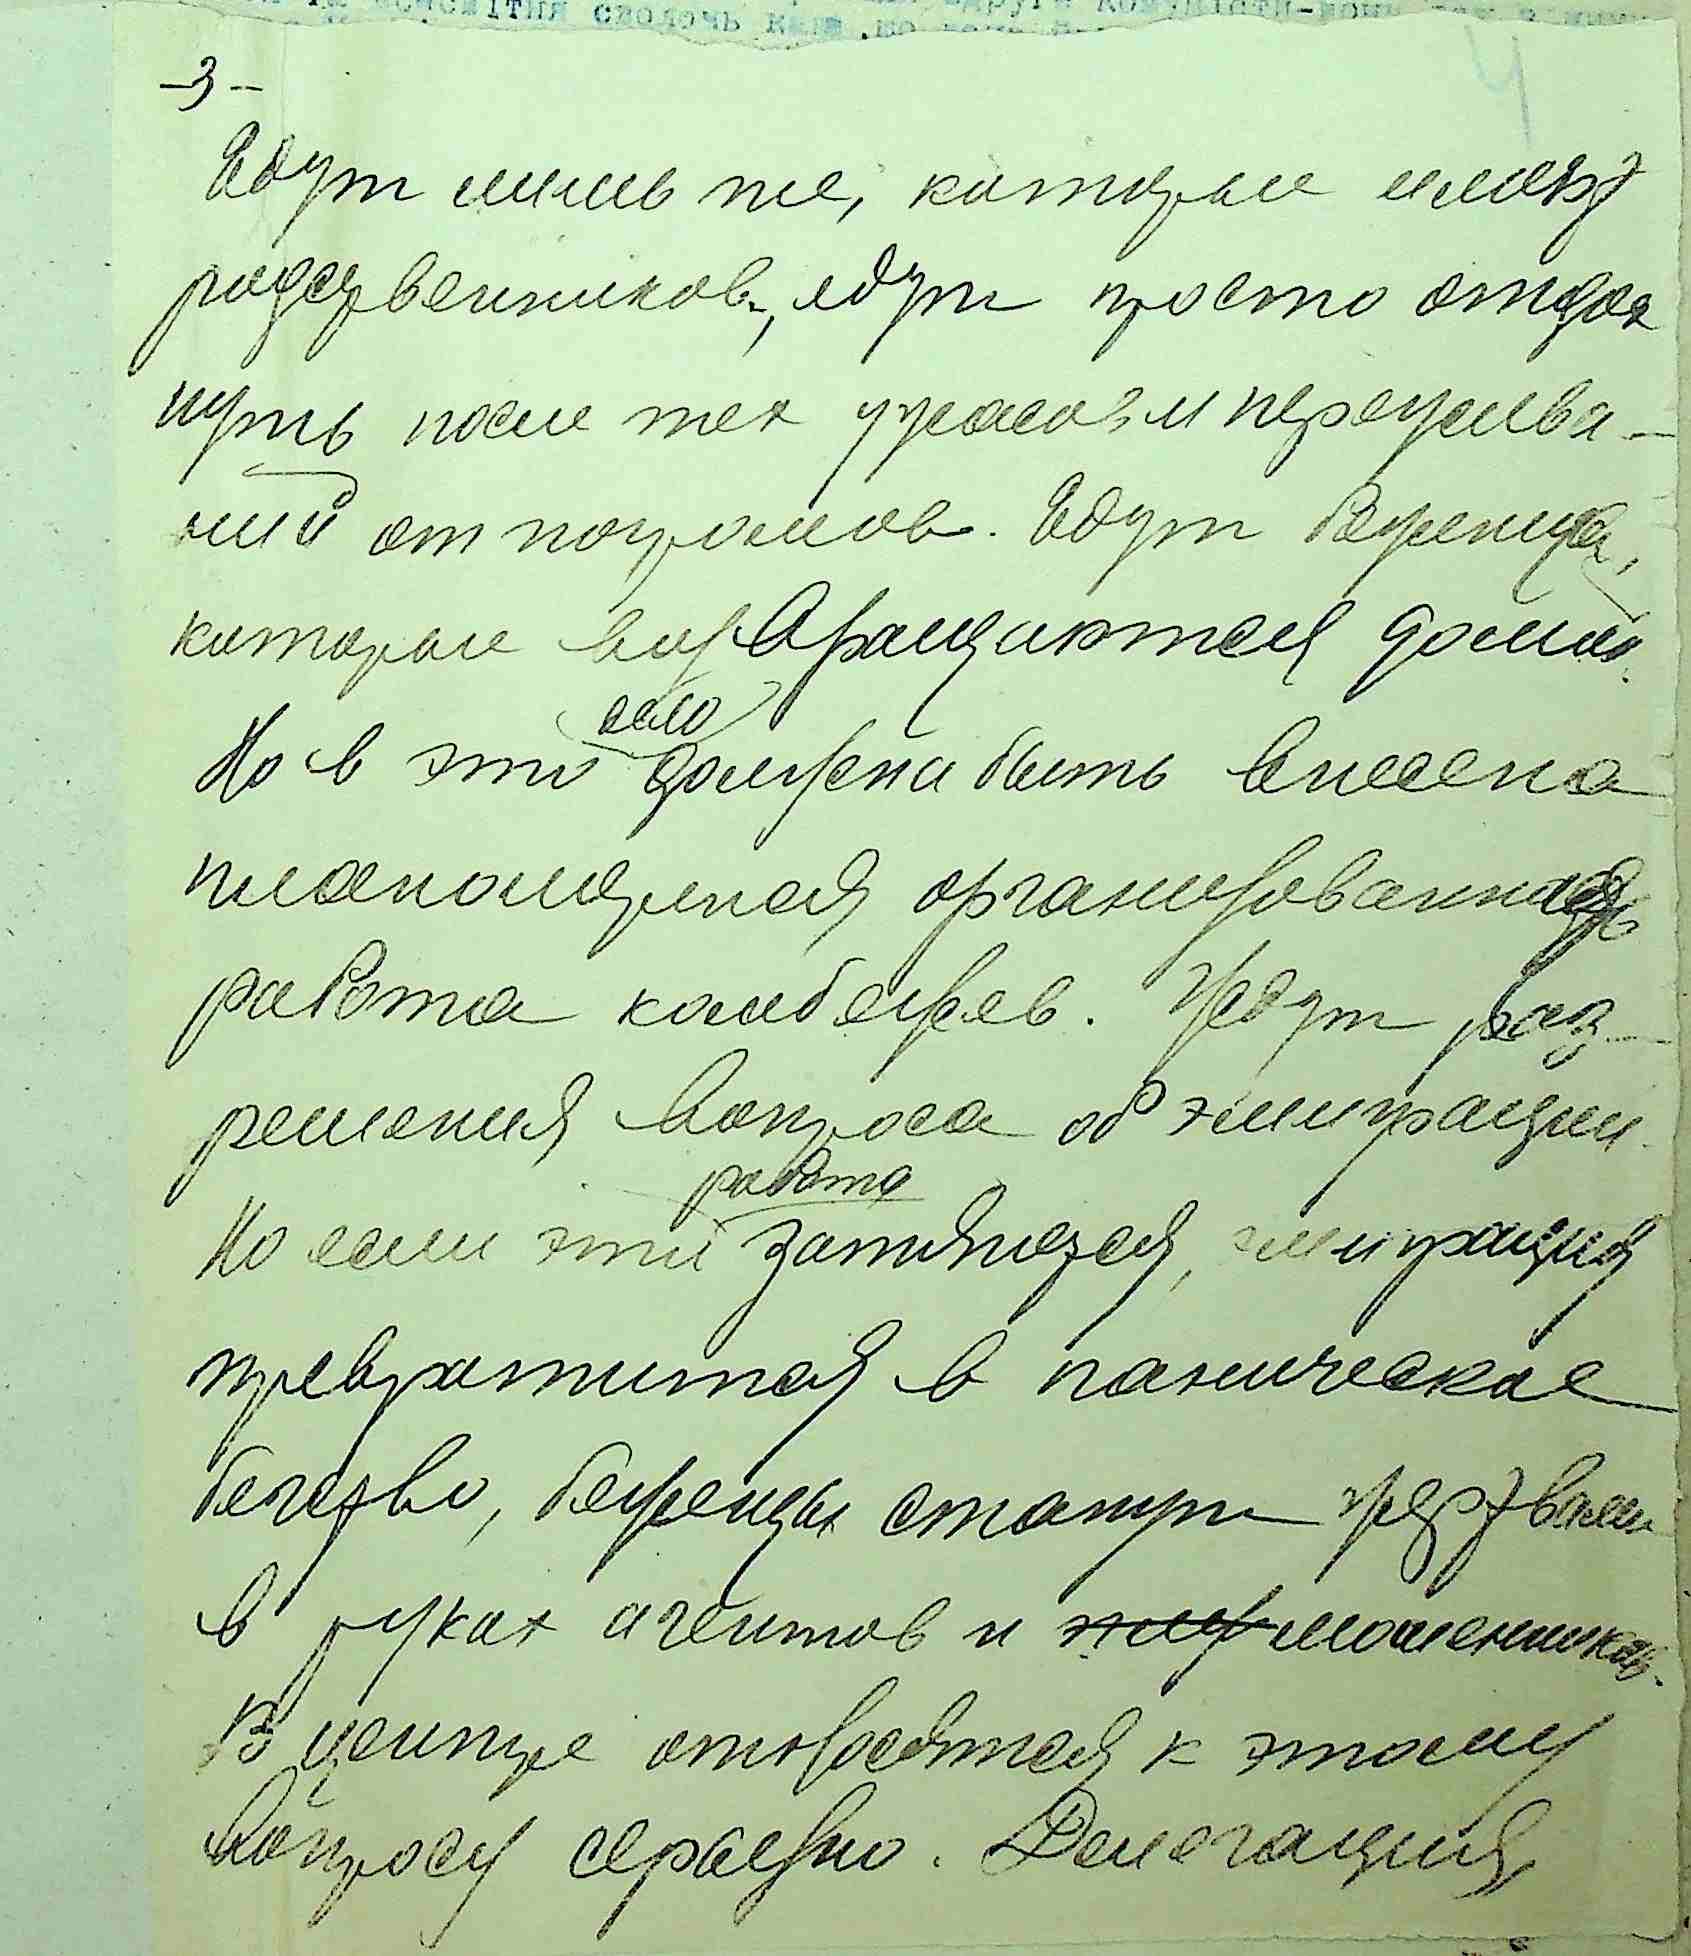 -3-
Едут лишь те, которые имеют
родственников, едут просто отдох
нуть после тех ужасов и пережива-
ний от погромов. Едут беженцы,
которые возвращаются домой.
Но в это дело должна быть внесена
планомерная организованная
работа комбежев. Ждут раз-
решения вопроса об эмиграции.
Но если эта работа затянется, эмиграция
превратится в паническое
бегство, беженцы станут жертвами
в руках агентов и мошенников.
В центре относятся к этому
вопросу серьезно. Делегация